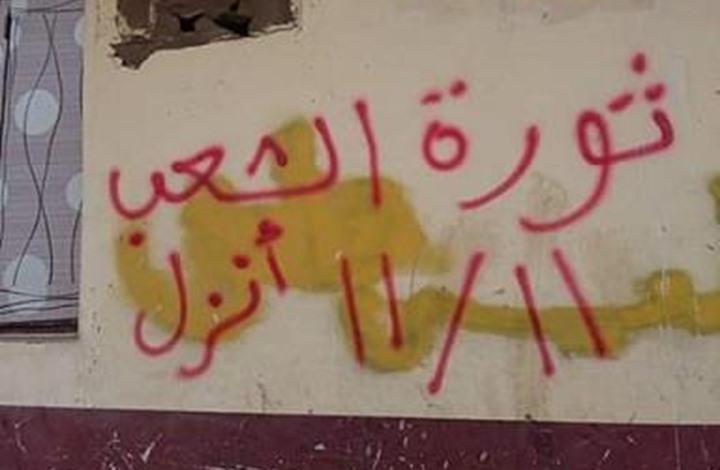 ثورة الشعب
١١/١١ أنزل